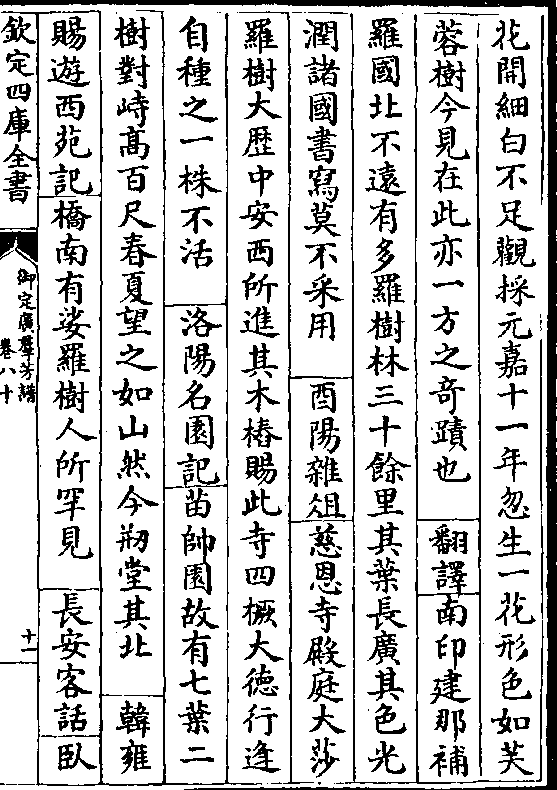 花開細白不足觀採元嘉十一年忽生一花形色如芙
蓉樹今見在此亦一方之奇蹟也　翻譯南印建那補
羅國北不遠有多羅樹林三十餘里其葉長廣其色光
潤諸國書寫莫不采用　酉陽雜俎慈恩寺殿庭大莎
羅樹大歴中安西所進其木樁賜此寺四橛大德行逢
自種之一株不活　洛陽名園記苗帥園故有七葉二
樹對峙髙百尺春夏望之如山然今剏堂其北　韓雍
賜遊西苑記橋南有娑羅樹人所罕見　長安客話臥
欽定四庫全書
御定廣羣芳譜
卷八十
十一